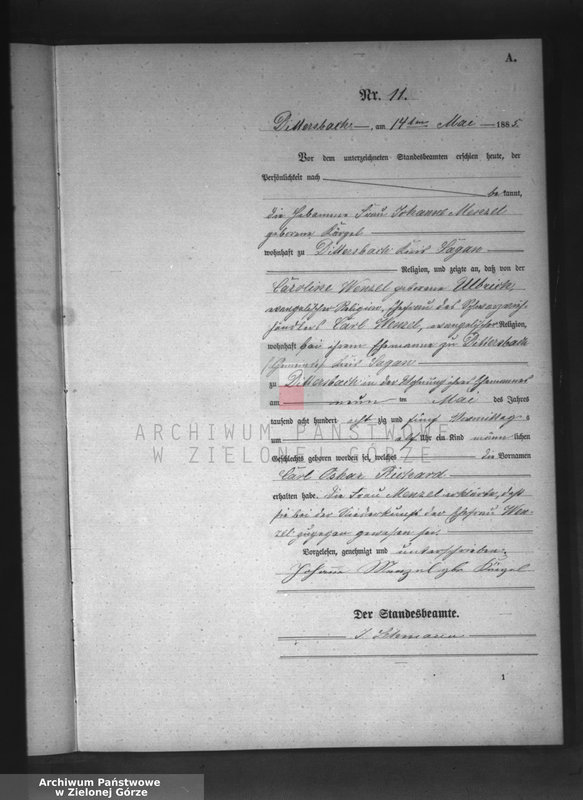 A.
Nr. 11.
Dittersbach, am 14ten Mai 1885.
Vor dem unterzeichneten Standesbeamten erschien heute, der
Persönlichkeit nach
bekannt,
die Hebamme Frau Johanne Menzel
geborene Körgel
wohnhaft zu Dittersbach Kreis Sagan
Religion, und zeigte an, daß von der
Caroline Wenzel geborene Ulbrich
evangelischer Religion, Ehefrau des
händlers Carl Wenzel, evangelischer Religion,
wohnhaft bei ihrem Ehemanne zu Dittersbach
Kreis Sagan
zu Dittersbach in der Wohnung ihres Ehemannes
am neun ten Mai des Jahres
tausend acht hundert achtzig und fünf Vormittags
um elf Uhr ein Kind männlichen
Geschlechts geboren worden sei, welches die Vornamen
Carl Oskar Richard
erhalten habe. Die Frau Menzel erklärte, daß
sie bei der Niederkunft der Ehefrau Wen-
zel zugegen gewesen sei.
Vorgelesen, genehmigt und unterschrieben.
Johanne Menzel gb Körgel
Der Standesbeamte.
1
ARCHIWUM PAŃSTWOWE
W ZIELONEJ GÓRZE
Archiwum Państwowe
w Zielonej Górze